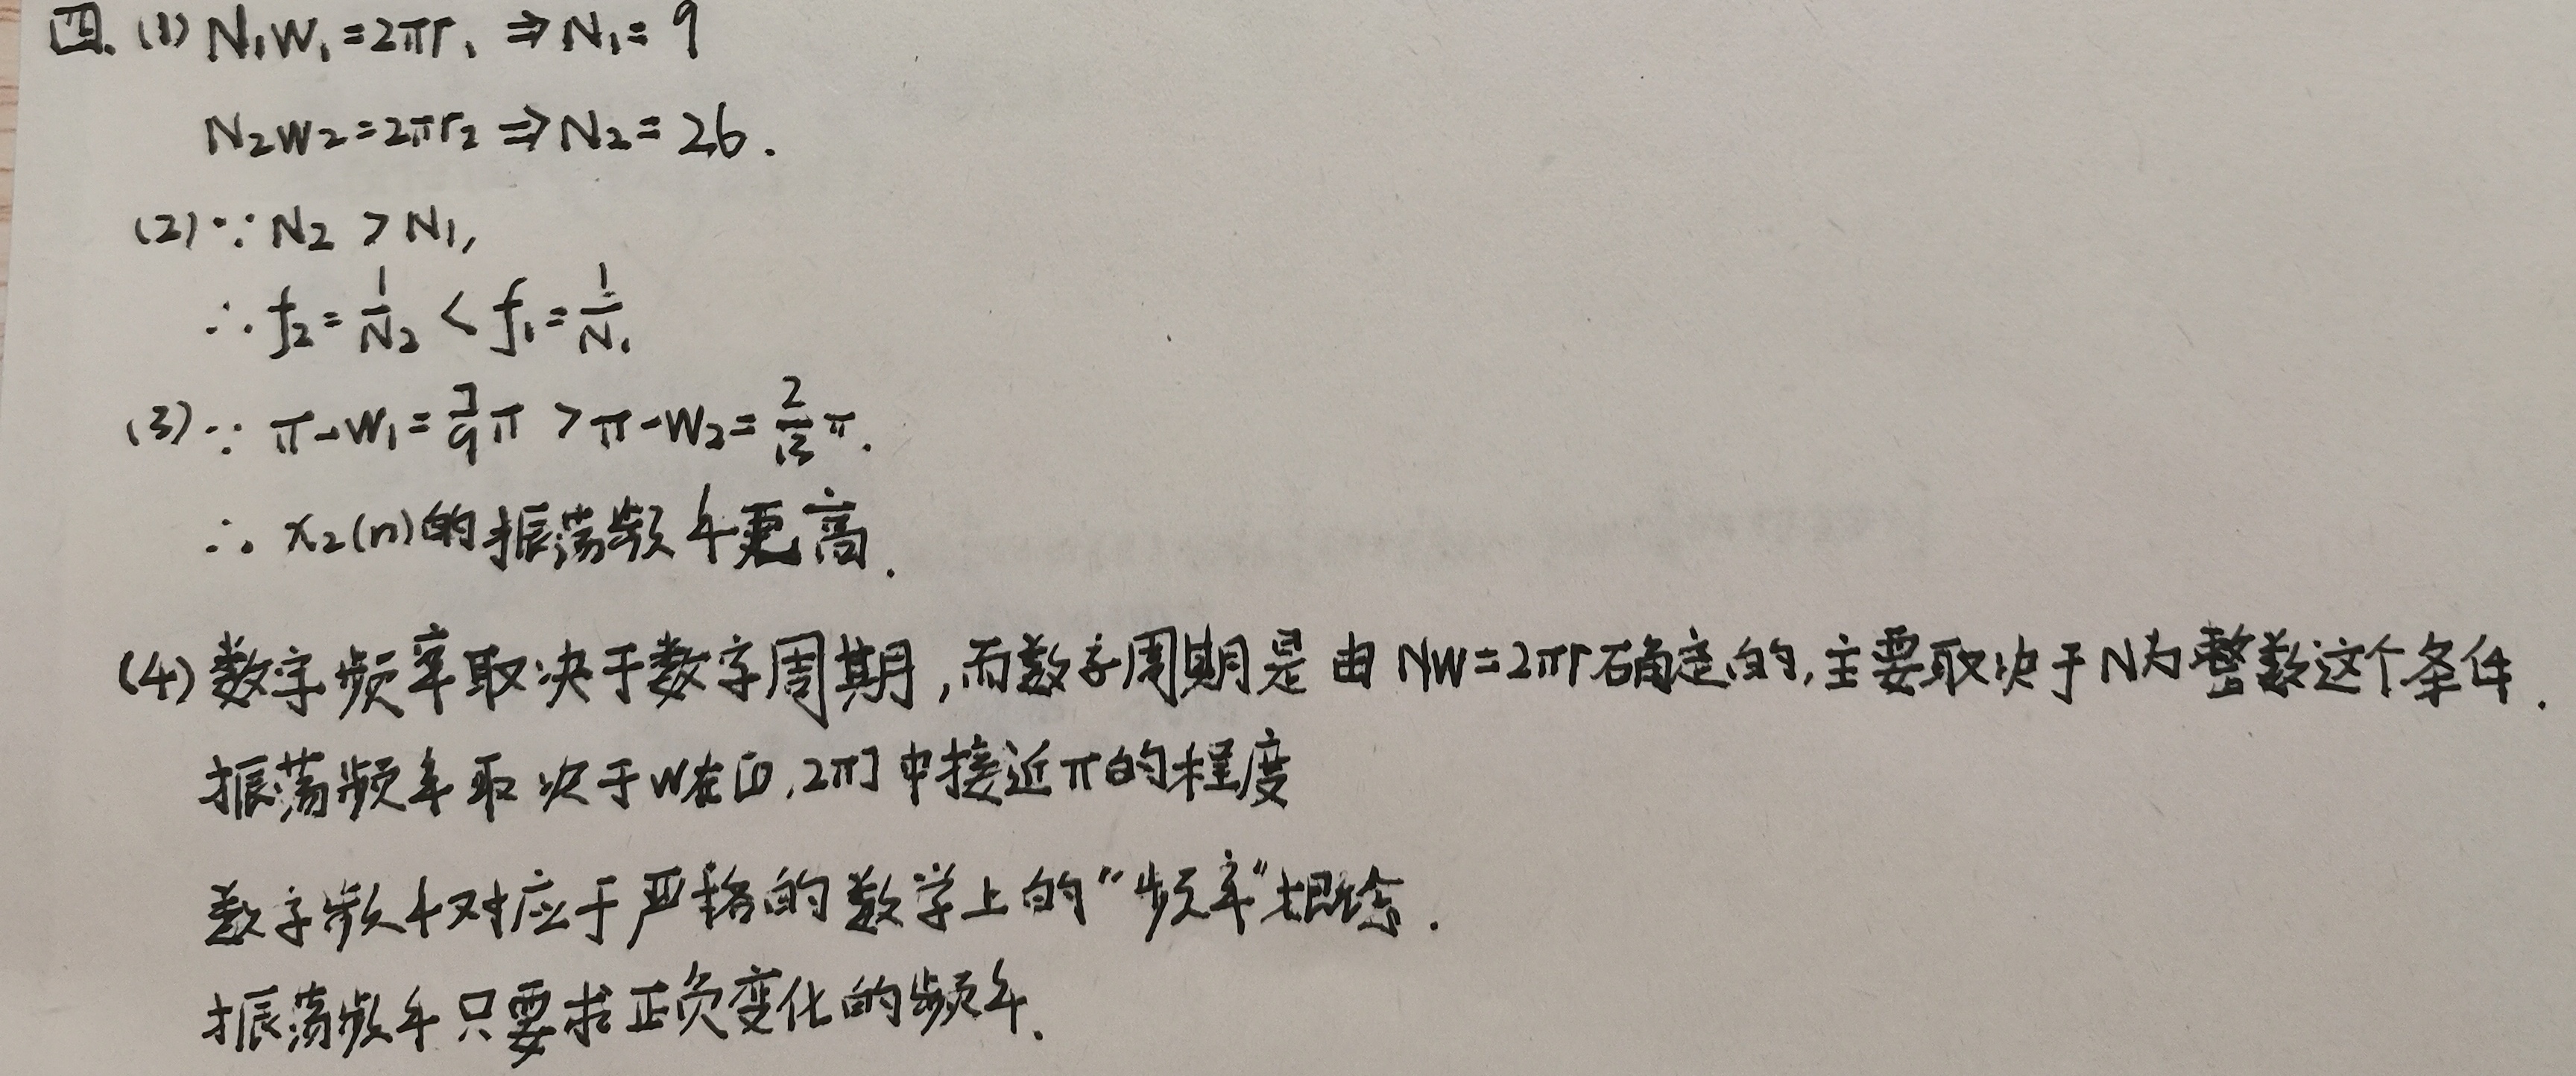 四. (1) N₁W₁=2πr₁ ⇒ N₁=9
N₂W₂=2πr₂ ⇒ N₂=26.
(2) ∵ N₂ > N₁,
∴ f₂=1/N₂ < f₁=1/N₁
(3) ∵ π-W₁=7/9π > π-W₂=2/13π.
∴ x₂(n)的振荡频率更高.
(4) 数字频率取决于数字周期,而数字周期是由NW=2πr确定的,主要取决于N为整数这个条件.
振荡频率取决于W在[0,2π]中接近π的程度
数字频率对应于严格的数学上的"频率"概念.
振荡频率只要求正负变化的频率.